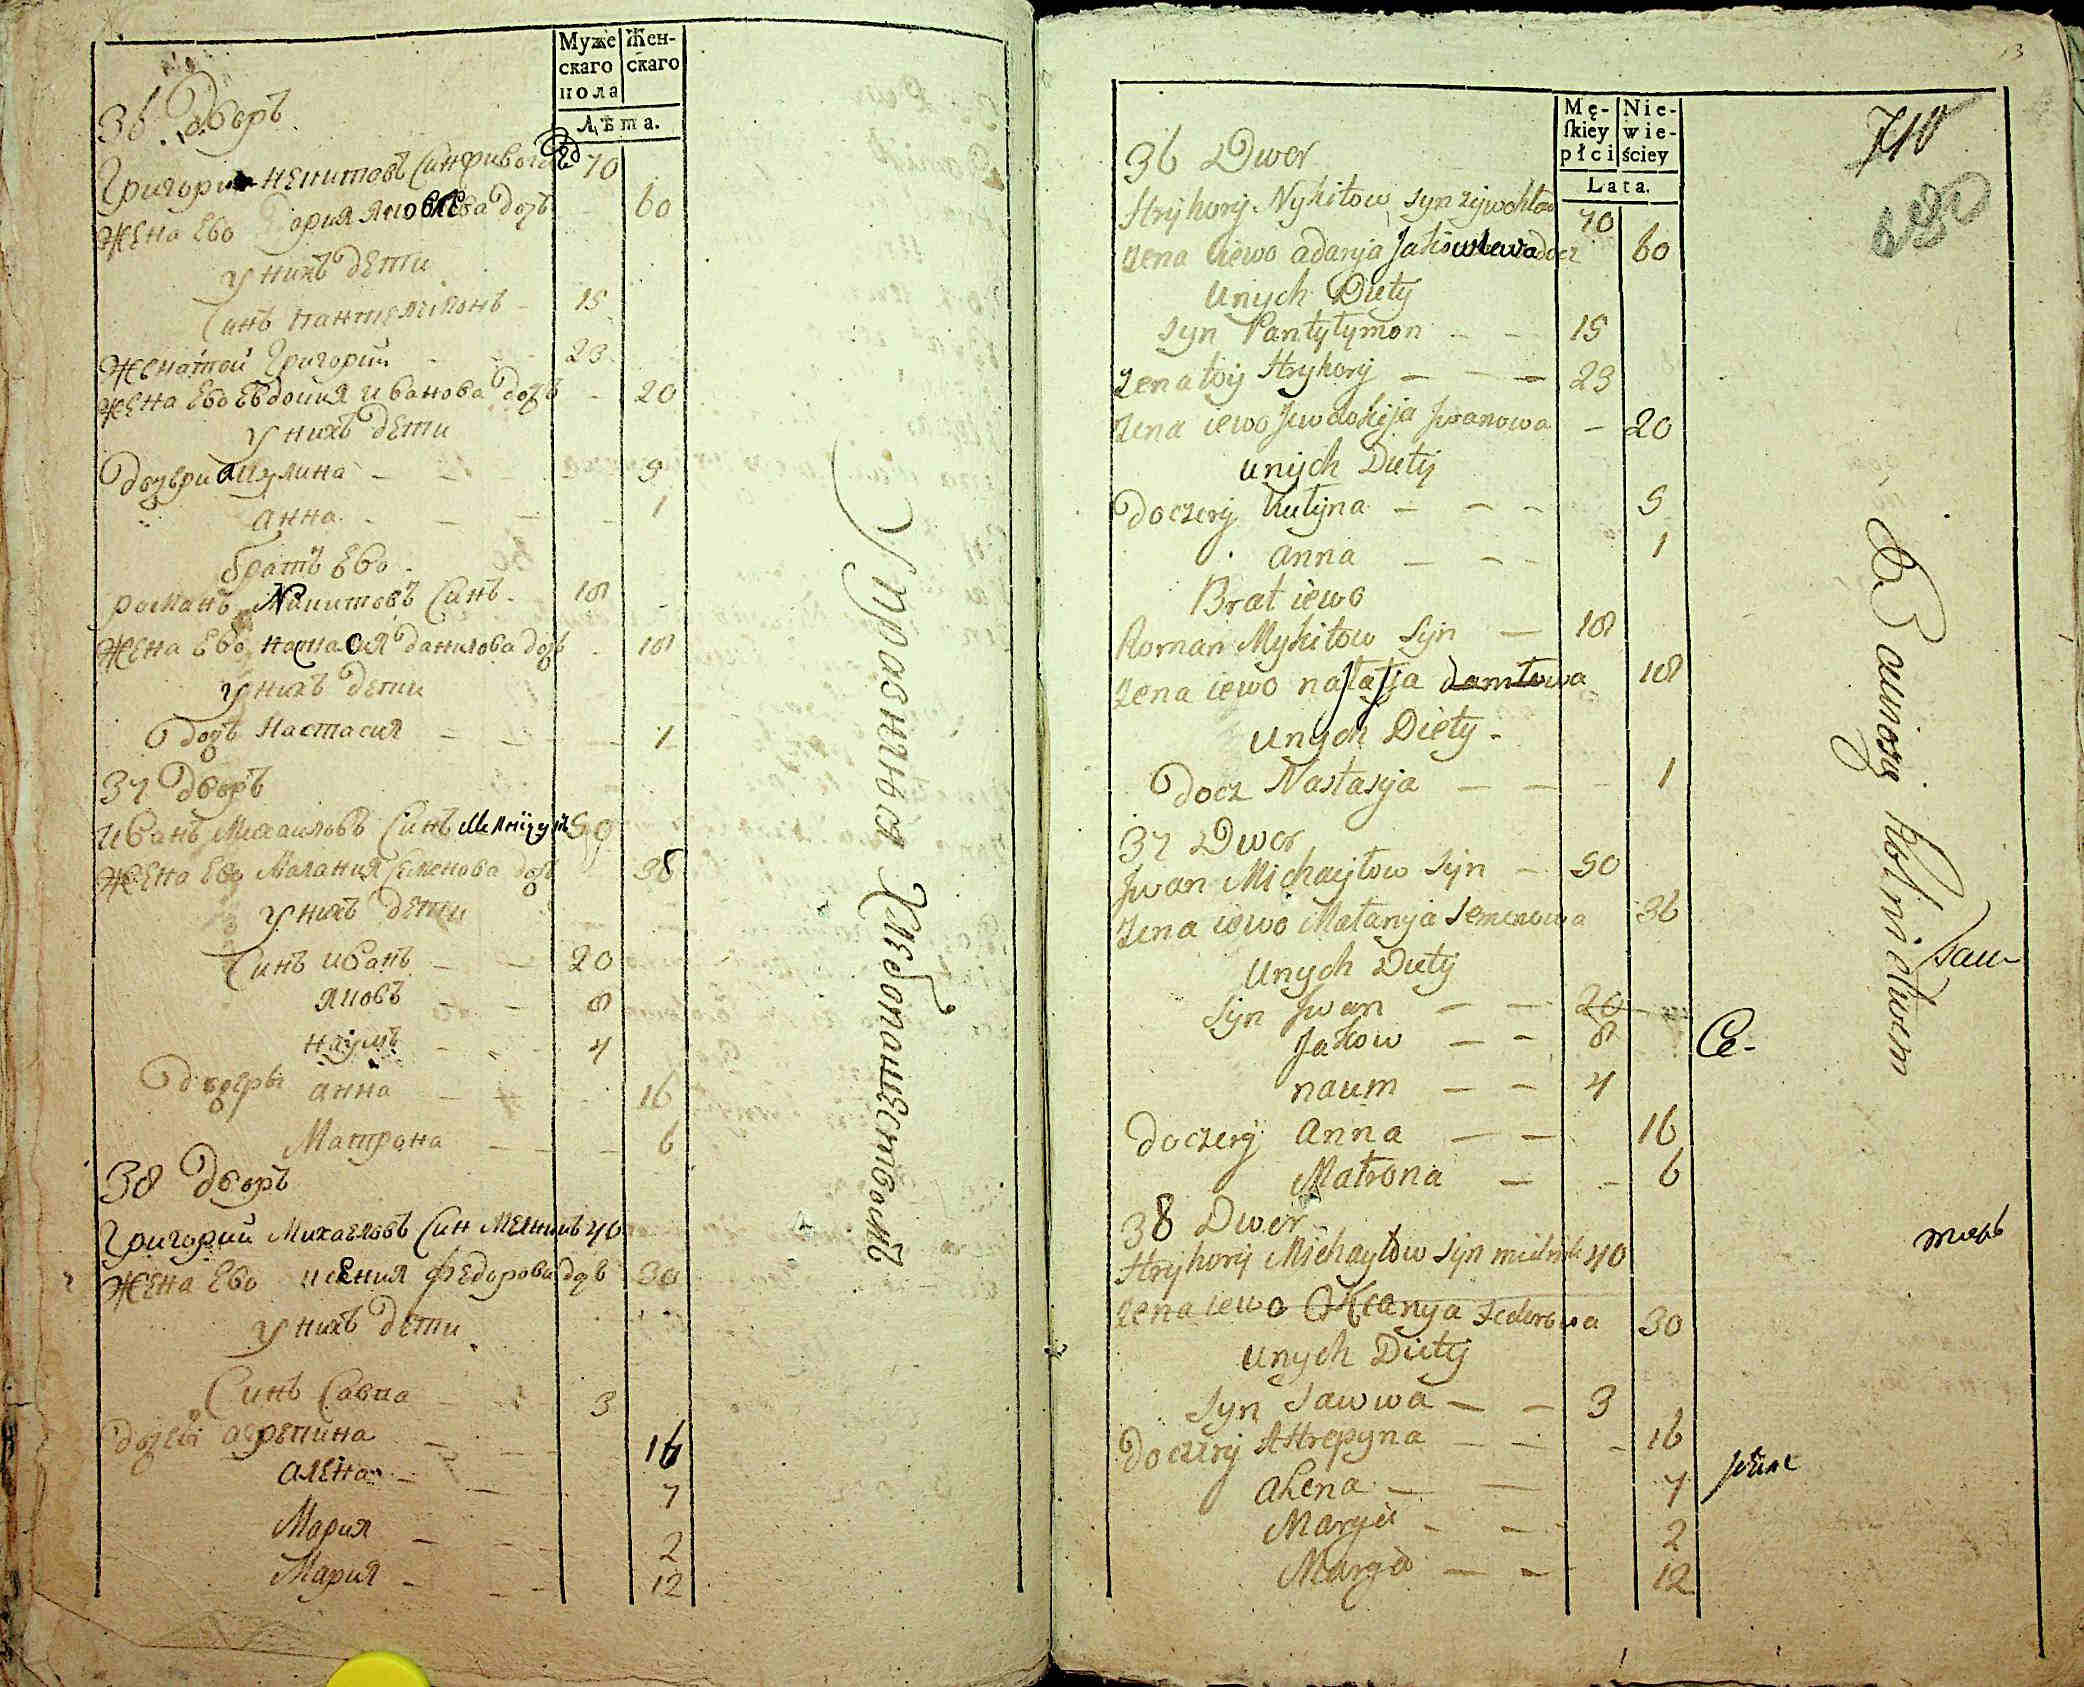 Муже
скаго
пола
Жен-
скаго
Лѣта.
36 Дворъ
Григорий Никитовъ Синъ 70
Жена Ево Яковлева дочъ 60
У нихъ дети
Синъ Пантелимонъ 15
Женатой Григорий 23
Жена Ево Евдокия Иванова дочъ 20
У нихъ дети
Дочери Акулина 5
Анна 1
Братъ Ево
Романъ Никитовъ Синъ 18
Жена Ево Данилова дочъ 18
У нихъ дети
Дочъ Настасия 1
37 Дворъ
Иванъ Михаиловъ Синъ 50
Жена Ево Малания Семенова дочъ 36
У нихъ дети
Синъ Иванъ 20
Яковъ 8
Наумъ 4
Дочери Анна 16
Матрона 6
38 Дворъ
Григорий Михаиловъ Син 40
Жена Ево Федорова дочъ 30
У нихъ дети
Синъ Савва 3
Дочери Агрепина 16
Алена 7
Мария 2
Мария 12
Упражнился Хлебопашествомъ
Mę-
skiey
płci
Nie-
wie-
ściey
Lata.
710
36 Dwor
Hryhory Nykitow Syn 70
Zena iewo Jakowlewa docz 60
Unych Diety
Syn Pantylymon 15
Zenatoy Hryhory 23
Zena iewo Jwdokija Jwanowa 20
Unych Diety
Doczery Kulyna 5
Anna 1
Brat iewo
Roman Mykitow Syn 18
Zena iewo Natasja Daniłowa 18
Unych Diety
Docz Nastasya 1
37 Dwor
Jwan Michayłow Syn 50
Zena iewo Małanya Semenowa 36
Unych Diety
Syn Jwan 20
Jakow 8
Naum 4
Doczery Anna 16
Matrona 6
38 Dwor
Hryhory Michayłow Syn 40
Zena iewo Fedorowa 30
Unych Diety
Syn Sawwa 3
Doczery Ahrepyna 16
Alena 7
Marya 2
Marya 12